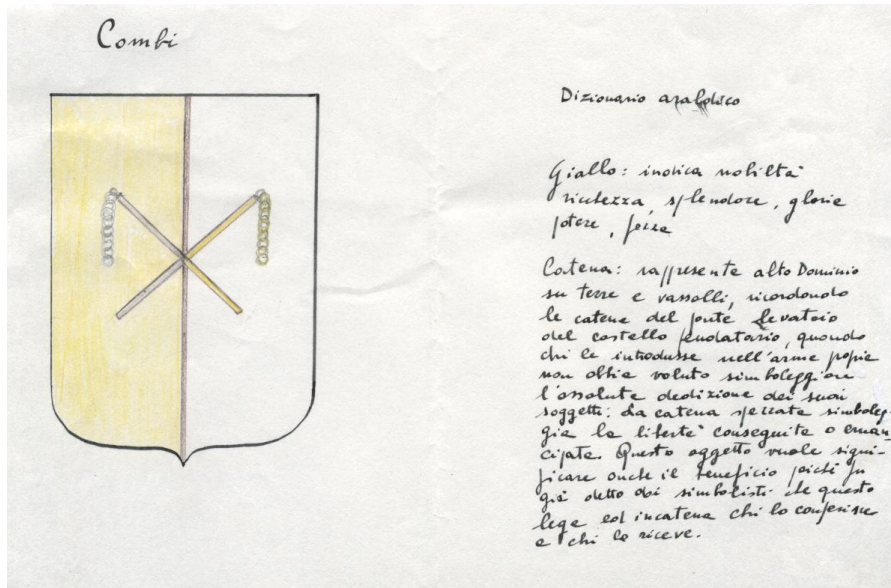 Combi
Dizionario araldico
Giallo: indica nobiltà
ricchezza, splendore, gloria
potere, forza
Catena: rappresenta alto Dominio
su terre e vassalli, ricordando
le catene del ponte levatoio
del castello feudatario, quando
chi le introdusse nell'arme propie
non abbia voluto simboleggiare
l'assoluta dedizione dei suoi
soggetti. La catena spezzata simboleg-
gia la libertà conseguita o eman-
cipata. Questo oggetto vuole signi-
ficare anche il beneficio poiché fu
già detto dai simbolisti che questo
lega ed incatena chi lo conferisce
e chi lo riceve.